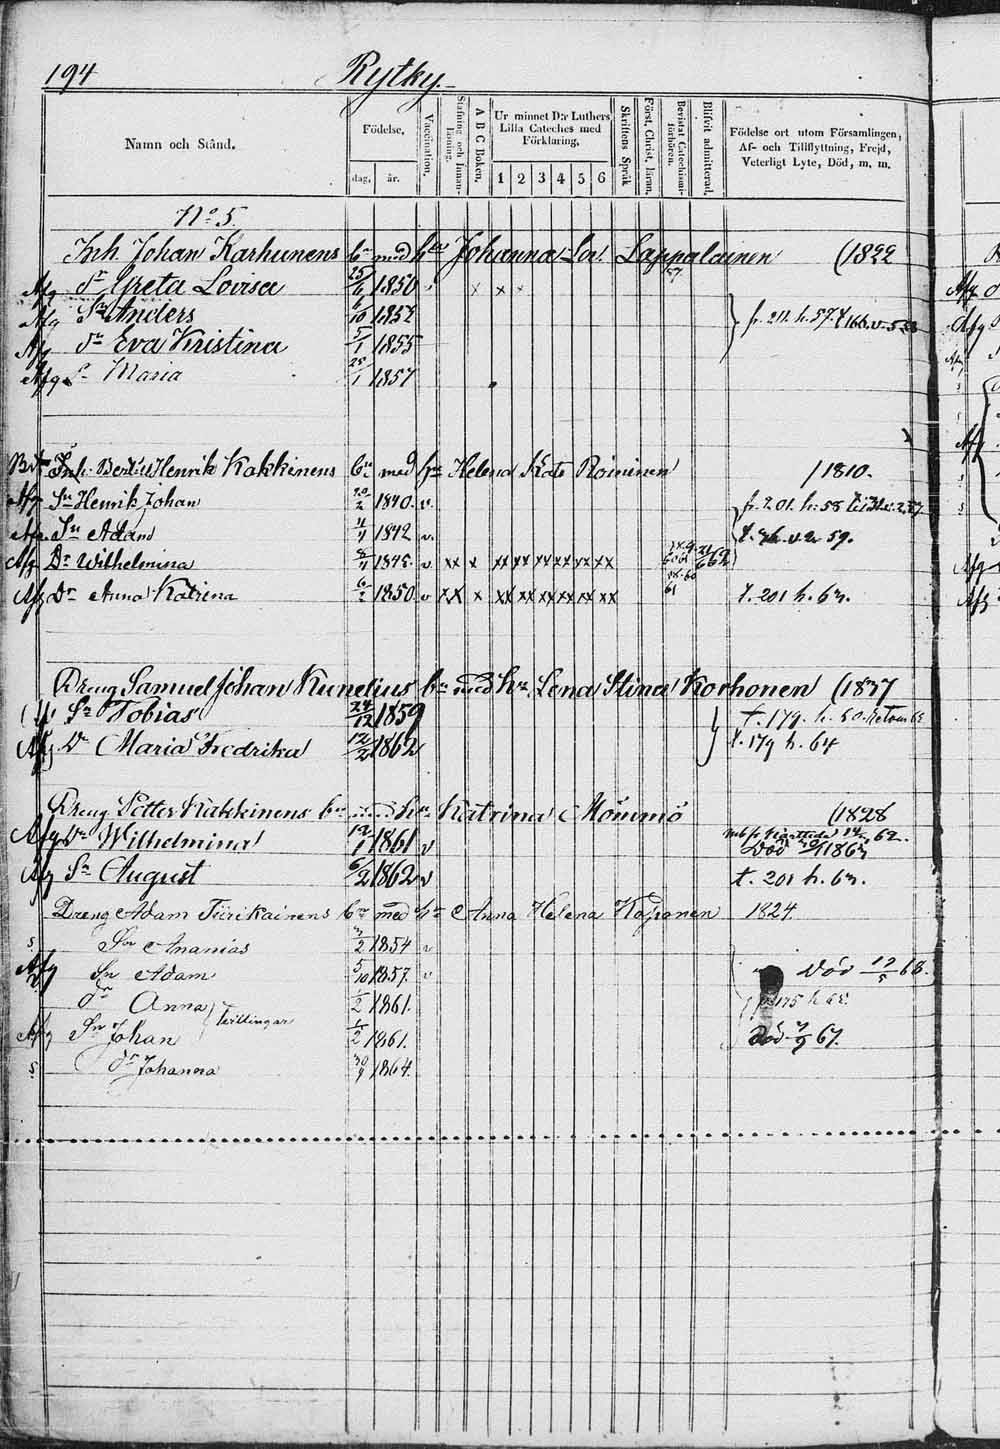 194 Rytky.
Namn och Stånd.
Födelse,
dag, år.
Vaccination.
Stafning och Innanläsning.
A B C Boken.
Ur minnet D:r Luthers Lilla Cateches med Förklaring.
1 2 3 4 5 6
Skriftens Språk
Först. Christ. läran.
Bevistat Catechismiförhören.
Blifvit admitterad.
Födelse ort utom Församlingen, Af- och Tillflyttning, Frejd, Veterligt Lyte, Död, m. m.
No 5.
Inh. Johan Karhunens bn med hu Johanna Lov. Lappalainen (1822
Afg dr Greta Lovisa 25/6 1850 x x x 57
Afg Sn Anders 6/10 1852 fr. 211. h. 57.
Afg dr Eva Kristina 5/1 1855
Afg dr Maria 25/1 1857
Inh. Bertils Henrik Kakkinens bn med hu Helena Kats Roininen 1810.
Afg Sn Henrik Johan 20/2 1840. v. fr. 201. h. 58
Afg Sn Adam 4/4 1842 v. 59.
Afg Dr Wilhelmina 8/4 1845. v xx x xx xx xx xx xx xx
Afg Dr Anna Katrina 6/2 1850 v xx x xx xx xx xx xx xx 61 t. 201 h. 63.
Dreng Samuel Johan Kunelius bn med hu Lena Stina Korhonen (1837
Sn Tobias 24/12 1859 t. 179. h. 60.
Afg Dr Maria Fredrika 12/2 1862 t. 179 h. 64
Dreng Petter Kakkinens bn med hu Katrina Mömmö (1828
Afg Dr Wilhelmina 12/1 1861 v 62.
Död 1863
Afg Sn August 6/2 1862 v t. 201 h. 63.
Dreng Adam Tiirikainens bn med hu Anna Helena Kaponen 1824
s Sn Ananias 3/2 1854 v
Afg Sn Adam 5/10 1857. v Död 12/5 68.
dr Anna 1/2 1861.
tvillingar
Afg Sn Johan 1/2 1861. Död 67.
s dr Johanna 1864.